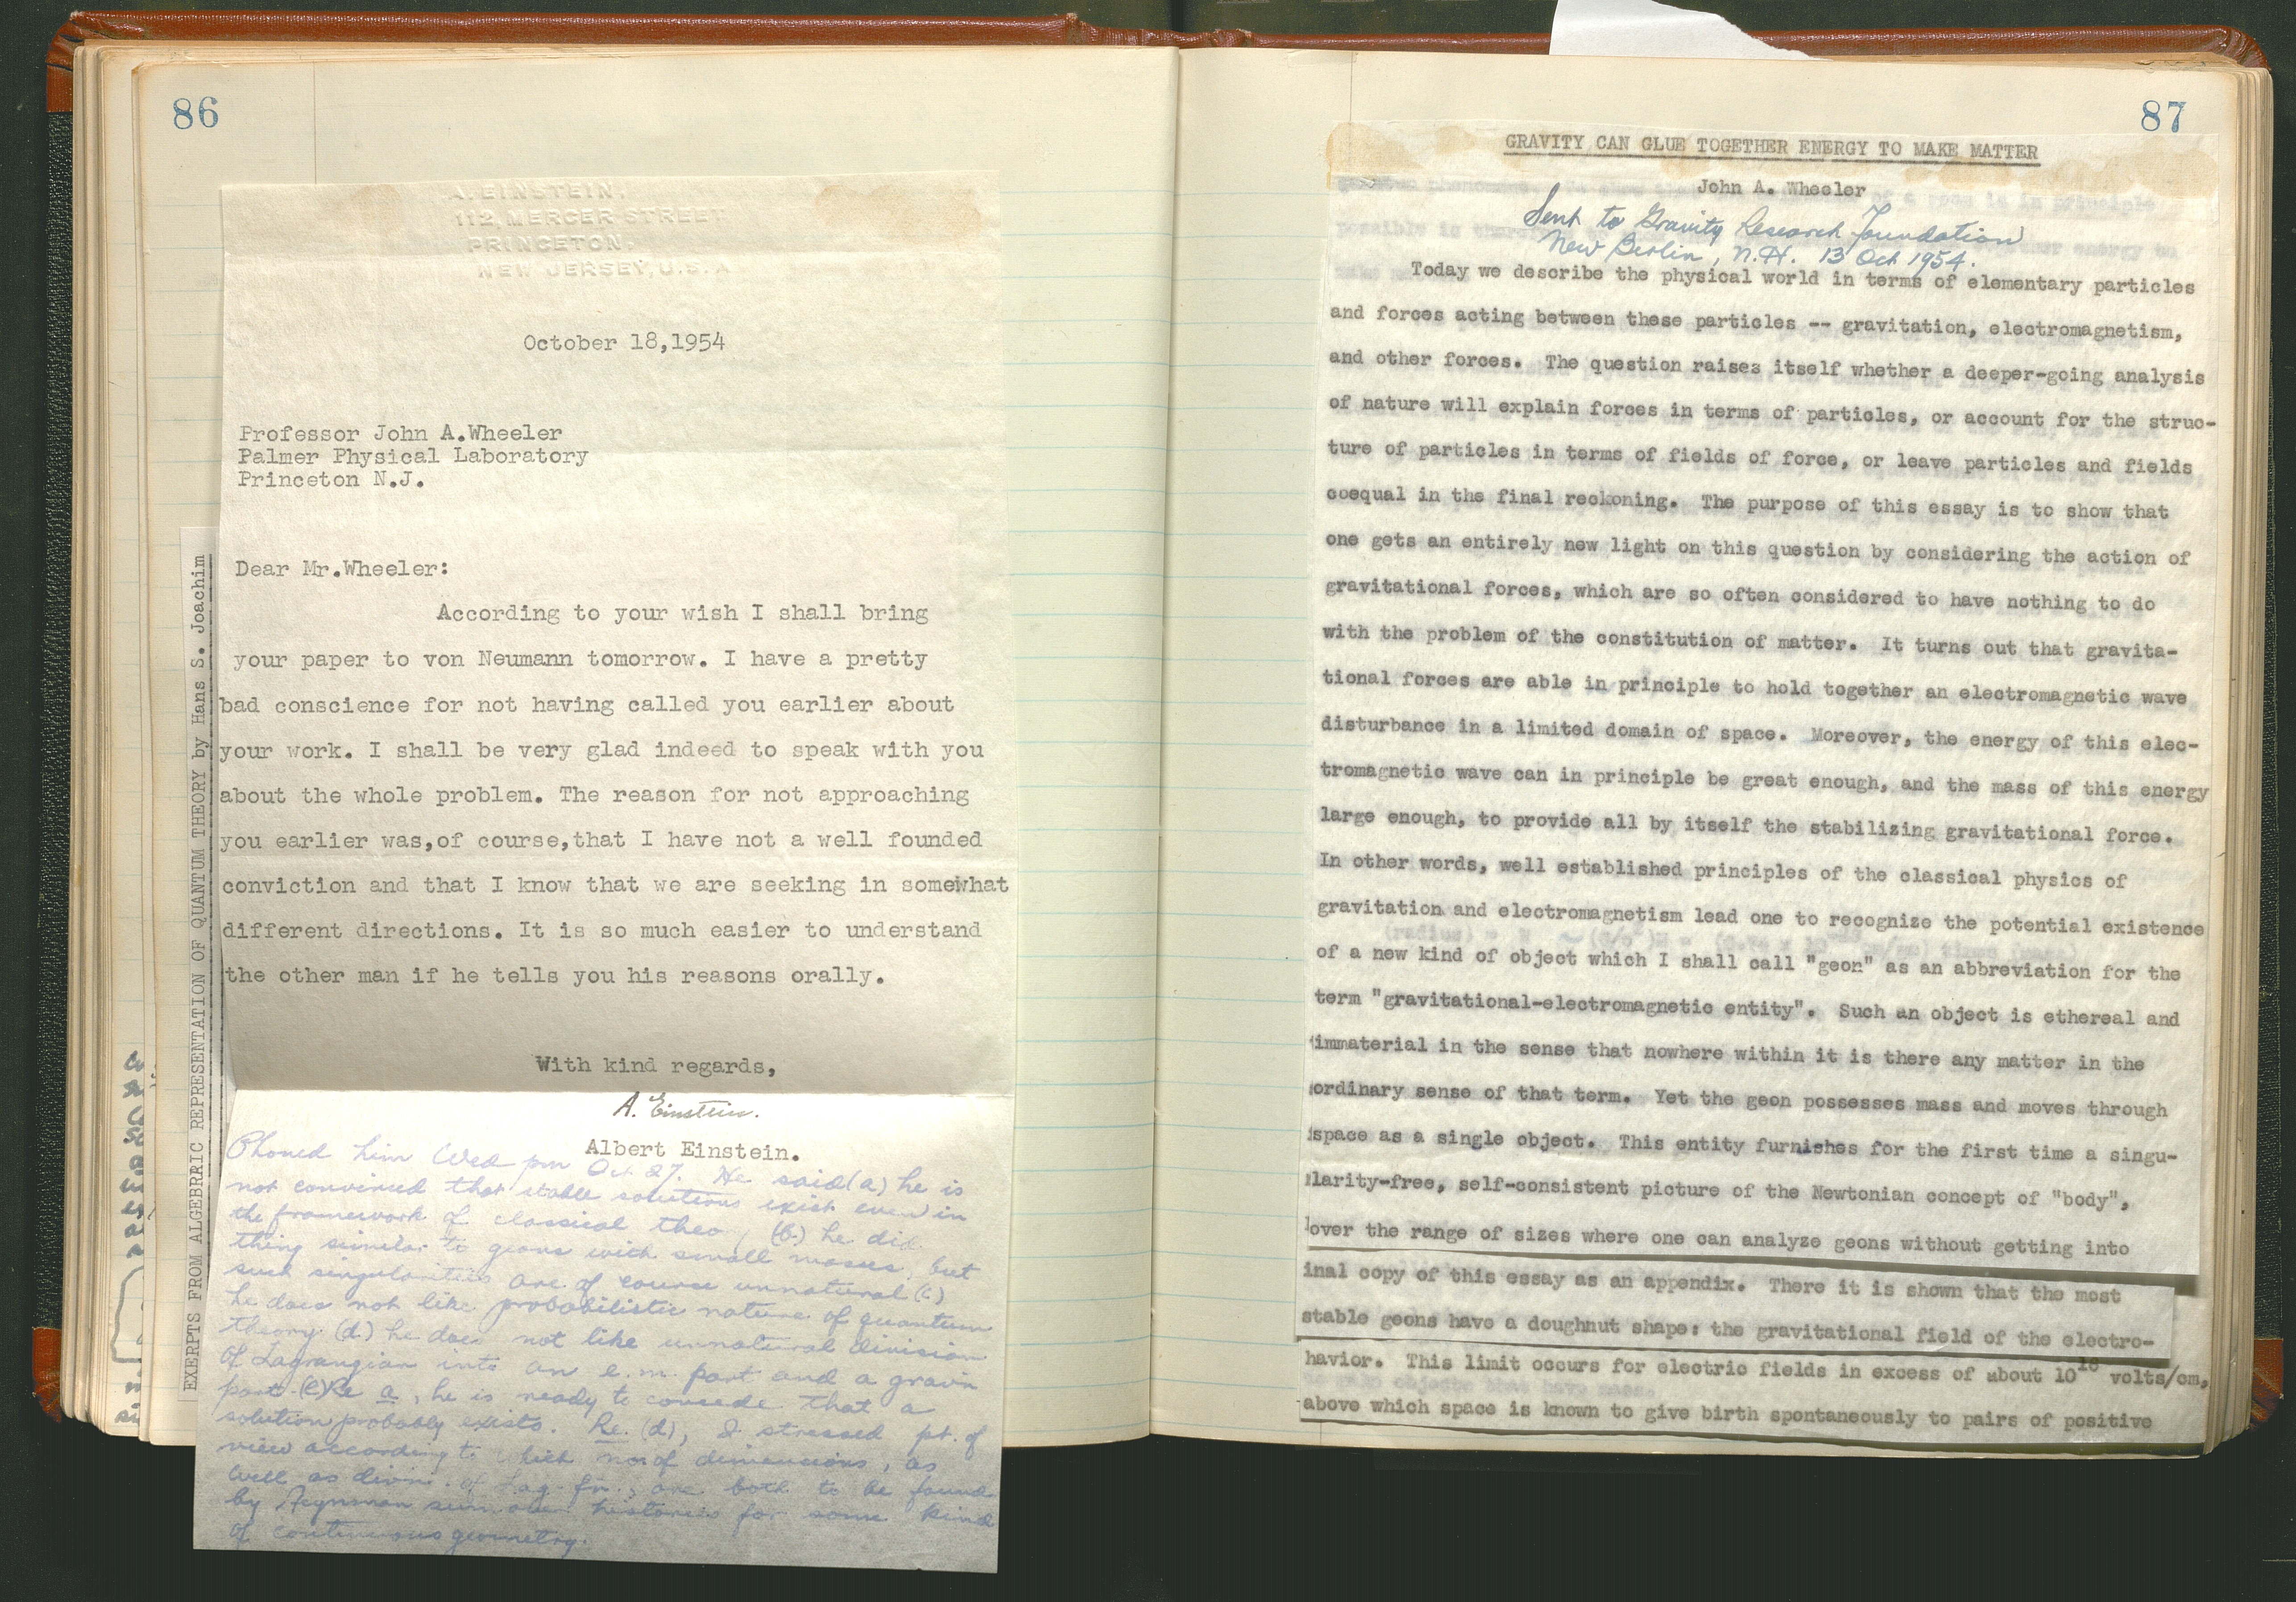 86
A. EINSTEIN.
112, MERCER STREET
PRINCETON,
NEW JERSEY, U.S.A
October 18,1954
Professor John A.Wheeler
Palmer Physical Laboratory
Princeton N.J.
Dear Mr.Wheeler:
According to your wish I shall bring
your paper to von Neumann tomorrow. I have a pretty
bad conscience for not having called you earlier about
your work. I shall be very glad indeed to speak with you
about the whole problem. The reason for not approaching
you earlier was,of course,that I have not a well founded
conviction and that I know that we are seeking in somewhat
different directions. It is so much easier to understand
the other man if he tells you his reasons orally.
With kind regards,
A. Einstein.
Albert Einstein.
Phoned him Wed pm Oct 27. He said (a) he is
not convinced that stable solutions exist even in
the framework of classical theo (b) he did
thing similar to geons with small masses, but
such singularities are of course unnatural (c)
he does not like probabilistic nature of quantum
theory. (d) he does not like unnatural division
of Lagrangian into an e.m. part and a grav'n
part. (e) Re a, he is ready to concede that a
solution probably exists. Re. (d), I stressed pt. of
view according to which no. of dimensions, as
well as div'n. of Lag. fn., are both to be found
by Feynman sum over histories for some kind
of continuous geometry.
EXERPTS FROM ALGEBRRIC REPRESENTATION OF QUANTUM THEORY by Hans S. Joachim
87
GRAVITY CAN GLUE TOGETHER ENERGY TO MAKE MATTER
John A. Wheeler
Sent to Gravity Research Foundation
New Berlin, N.H. 13 Oct 1954.
Today we describe the physical world in terms of elementary particles
and forces acting between these particles -- gravitation, electromagnetism,
and other forces. The question raises itself whether a deeper-going analysis
of nature will explain forces in terms of particles, or account for the struc-
ture of particles in terms of fields of force, or leave particles and fields
coequal in the final reckoning. The purpose of this essay is to show that
one gets an entirely new light on this question by considering the action of
gravitational forces, which are so often considered to have nothing to do
with the problem of the constitution of matter. It turns out that gravita-
tional forces are able in principle to hold together an electromagnetic wave
disturbance in a limited domain of space. Moreover, the energy of this elec-
tromagnetic wave can in principle be great enough, and the mass of this energy
large enough, to provide all by itself the stabilizing gravitational force.
In other words, well established principles of the classical physics of
gravitation and electromagnetism lead one to recognize the potential existence
of a new kind of object which I shall call "geon" as an abbreviation for the
term "gravitational-electromagnetic entity". Such an object is ethereal and
immaterial in the sense that nowhere within it is there any matter in the
ordinary sense of that term. Yet the geon possesses mass and moves through
space as a single object. This entity furnishes for the first time a singu-
larity-free, self-consistent picture of the Newtonian concept of "body",
over the range of sizes where one can analyze geons without getting into
inal copy of this essay as an appendix. There it is shown that the most
stable geons have a doughnut shape: the gravitational field of the electro-
havior. This limit occurs for electric fields in excess of about 10^16 volts/cm,
above which space is known to give birth spontaneously to pairs of positive